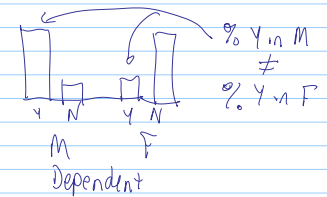 % Y in M
≠
% Y in F
Y N Y N
M F
Dependent